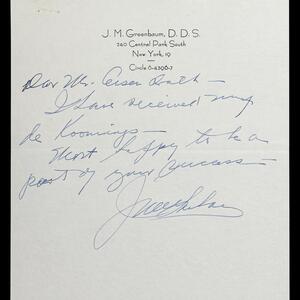 J. M. Greenbaum, D. D. S.
240 Central Park South
New York, 19
Circle 6-4396-7
Dear Mr.
I have received my
de Koonings —
Most happy to be a
part of your success —